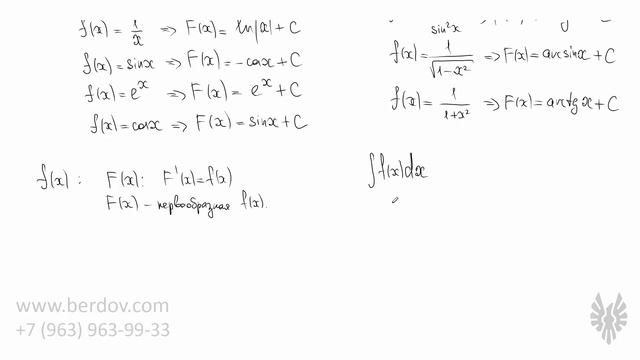 f(x) = 1/x ⇒ F(x) = ln|x| + C
f(x) = sinx ⇒ F(x) = -cosx + C
f(x) = e^x ⇒ F(x) = e^x + C
f(x) = cosx ⇒ F(x) = sinx + C
sin²x
f(x) = 1/√(1-x²) ⇒ F(x) = arcsinx + C
f(x) = 1/(1+x²) ⇒ F(x) = arctg x + C
f(x) : F(x): F'(x) = f(x)
F(x) – первообразная f(x).
∫f(x)dx
www.berdov.com
+7 (963) 963-99-33